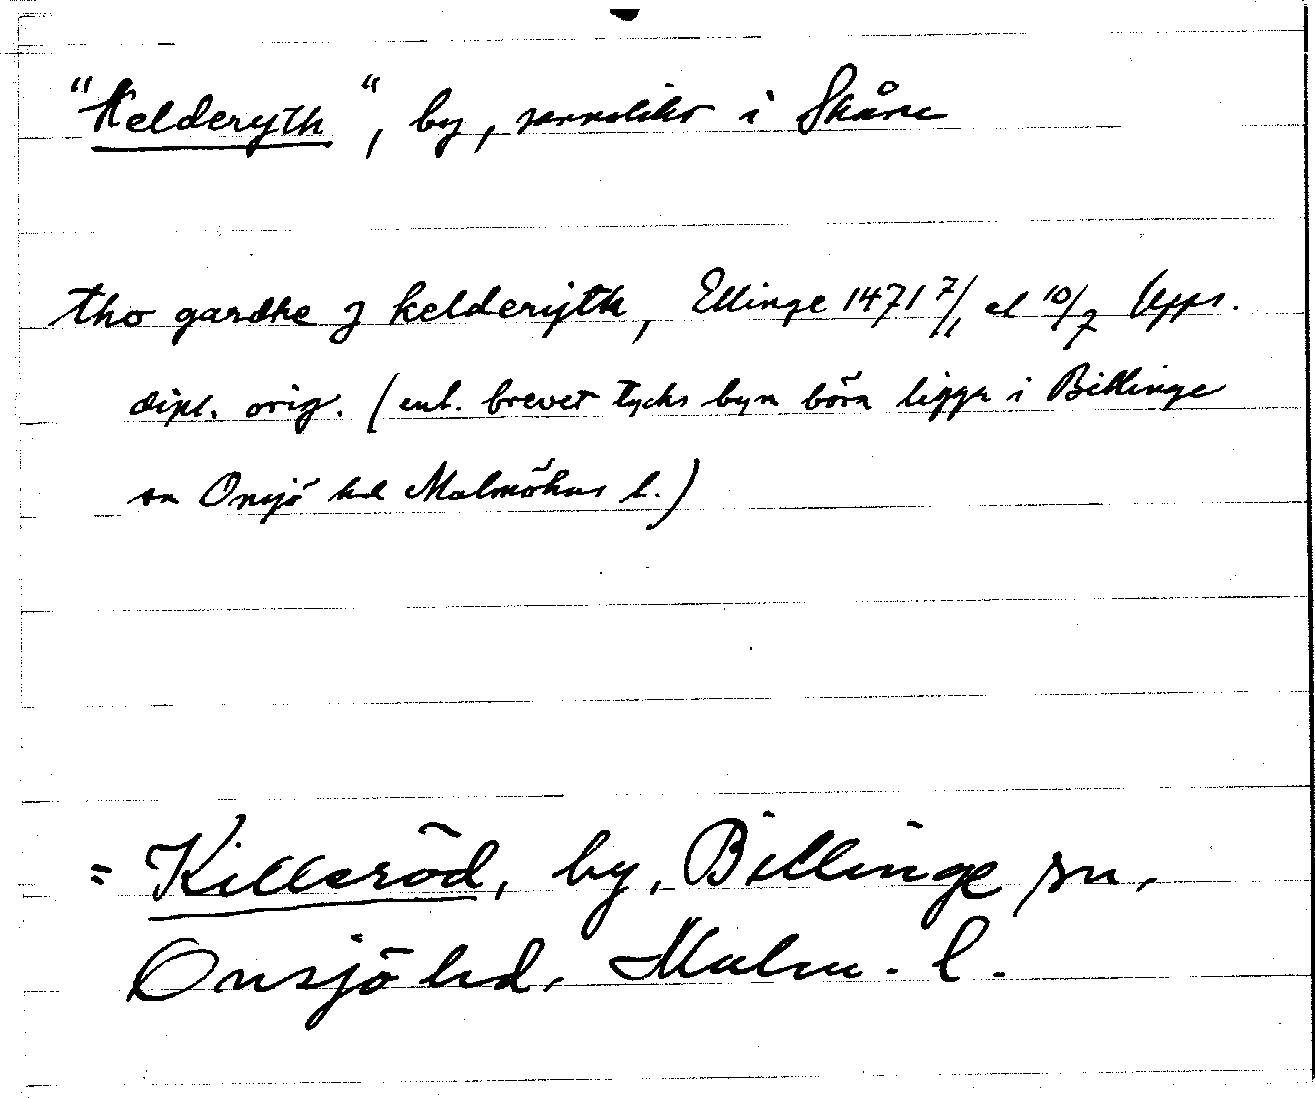 "Kelderyth", by, sannolikt i Skåne
tho gardhe j kelderijth, Ellinge 1471 7/1 el 10/7 Upps.
dipl. orig. (enl. brevet tycks byn böra ligga i Billinge
sn Onsjö hd Malmöhus l.)
= Killeröd, by, Billinge sn,
Onsjö hd. Malm. l.